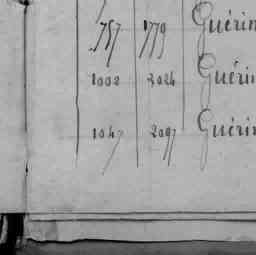 757 1779 Guérin
1002 2024 Guérin
1047 2097 Guérin